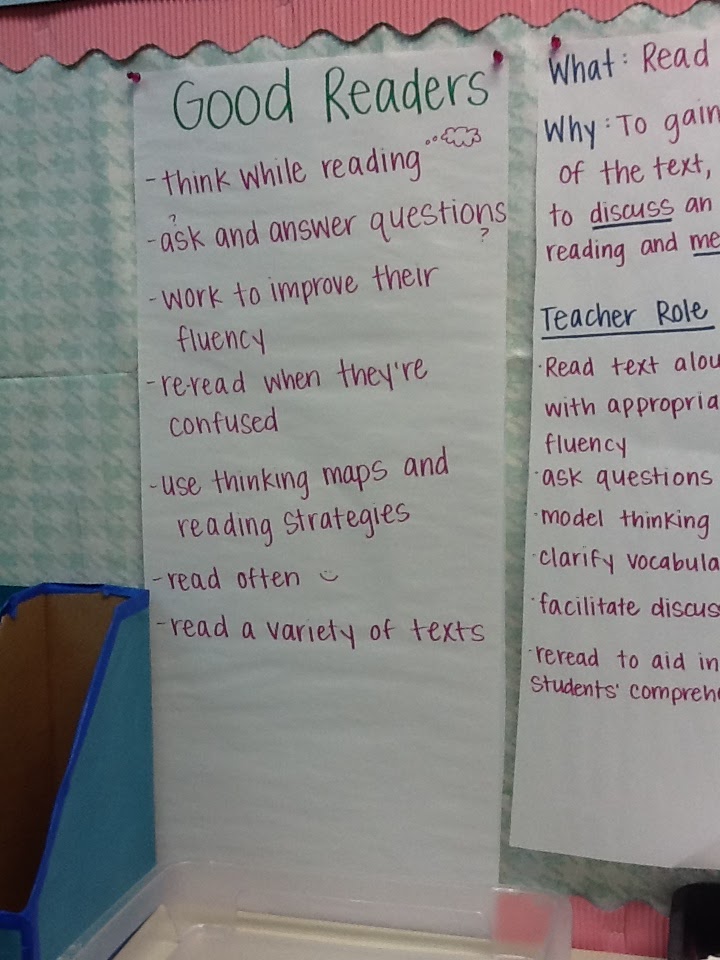 Good Readers
-think while reading
? 
-ask and answer questions
?
-work to improve their
fluency
-re-read when they're
confused
-use thinking maps and
reading strategies
-read often
-read a variety of texts
What: Read
Why: To gain
of the text,
to discuss an
reading and me
Teacher Role
·Read text alou
with appropria
fluency
·ask questions
·model thinking
·clarify vocabula
·facilitate discus
·reread to aid in
students' compreh